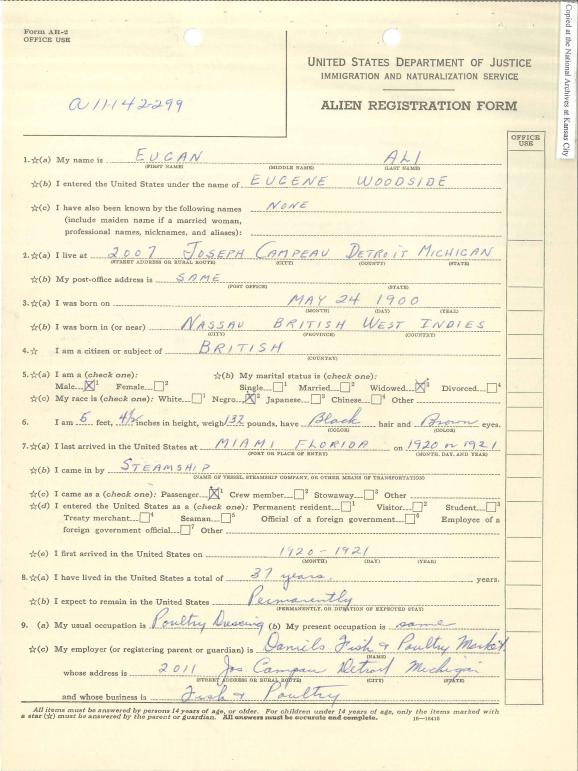 Form AR-2
OFFICE USE
a 11-142-299
UNITED STATES DEPARTMENT OF JUSTICE
IMMIGRATION AND NATURALIZATION SERVICE
ALIEN REGISTRATION FORM
Copied at the National Archives at Kansas City
OFFICE USE
1.☆(a) My name is EUGAN ALI
(FIRST NAME) (MIDDLE NAME) (LAST NAME)
☆(b) I entered the United States under the name of EUGENE WOODSIDE
☆(c) I have also been known by the following names NONE
(include maiden name if a married woman,
professional names, nicknames, and aliases):
2.☆(a) I live at 2007 JOSEPH CAMPEAU DETROIT MICHIGAN
(STREET ADDRESS OR RURAL ROUTE) (CITY) (COUNTY) (STATE)
☆(b) My post-office address is SAME
(POST OFFICE) (STATE)
3.☆(a) I was born on MAY 24 1900
(MONTH) (DAY) (YEAR)
☆(b) I was born in (or near) NASSAU BRITISH WEST INDIES
(CITY) (PROVINCE) (COUNTRY)
4.☆ I am a citizen or subject of BRITISH
(COUNTRY)
5.☆(a) I am a (check one): ☆(b) My marital status is (check one):
Male ☒1 Female ☐2 Single ☐1 Married ☐2 Widowed ☒3 Divorced ☐4
☆(c) My race is (check one): White ☐1 Negro ☒2 Japanese ☐3 Chinese ☐4 Other
6. I am 5 feet, 4½ inches in height, weigh 137 pounds, have Black hair and Brown eyes.
(COLOR) (COLOR)
7.☆(a) I last arrived in the United States at MIAMI FLORIDA on 1920 or 1921
(PORT OR PLACE OF ENTRY) (MONTH, DAY, AND YEAR)
☆(b) I came in by STEAMSHIP
(NAME OF VESSEL, STEAMSHIP COMPANY, OR OTHER MEANS OF TRANSPORTATION)
☆(c) I came as a (check one): Passenger ☒1 Crew member ☐2 Stowaway ☐3 Other
☆(d) I entered the United States as a (check one): Permanent resident ☐1 Visitor ☐2 Student ☐3
Treaty merchant ☐4 Seaman ☐5 Official of a foreign government ☐6 Employee of a
foreign government official ☐7 Other
☆(e) I first arrived in the United States on 1920 - 1921
(MONTH) (DAY) (YEAR)
8.☆(a) I have lived in the United States a total of 37 years. years.
☆(b) I expect to remain in the United States Permanently
(PERMANENTLY, OR DURATION OF EXPECTED STAY)
9. (a) My usual occupation is Poultry Dressing (b) My present occupation is same
☆(c) My employer (or registering parent or guardian) is Daniels Fish & Poultry Market.
(NAME)
whose address is 2011 Jos. Campau Detroit Michigan
(STREET ADDRESS OR RURAL ROUTE) (CITY) (STATE)
and whose business is Fish & Poultry
All items must be answered by persons 14 years of age, or older. For children under 14 years of age, only the items marked with
a star (☆) must be answered by the parent or guardian. All answers must be accurate and complete. 16—16415